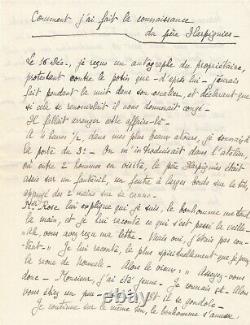 Comment j'ai fait la connaissance
du père Harpignies.
Le 16 Déc, je reçus un autographe du propriétaire,
protestant contre le potin que - d'après lui - je
faisait pendant la nuit dans son escalier, et déclarant que
si cela se renouvelait il nous donnerait congé.
Il fallait arranger cette affaire-là.
à 4 heures ½, dans mes plus beaux atours, je sonnais à
la porte du 3e. On m'introduisait dans l'atelier,
où entre 2 hommes en visite, le père Harpignies était
assis sur un fauteuil, un feutre à larges bords sur la tête,
appuyé des 2 mains sur sa canne.
Rose lui explique qui je suis, le bonhomme me tend
la main, et je lui raconte ce qui s'est passé la veille
"Ah, vous avez reçu ma lettre. Vous, j'avais pas con-
tent." Je lui racontai, le plus spirituellement que je peux
Alors le vieux : "Asseyez-vous
donc - Monsieur, j'ai été jeune. Je connais ça. Alors
vous étiez un peu et il se gondola.
Je continue sur le même ton, le bonhomme s'amuse.